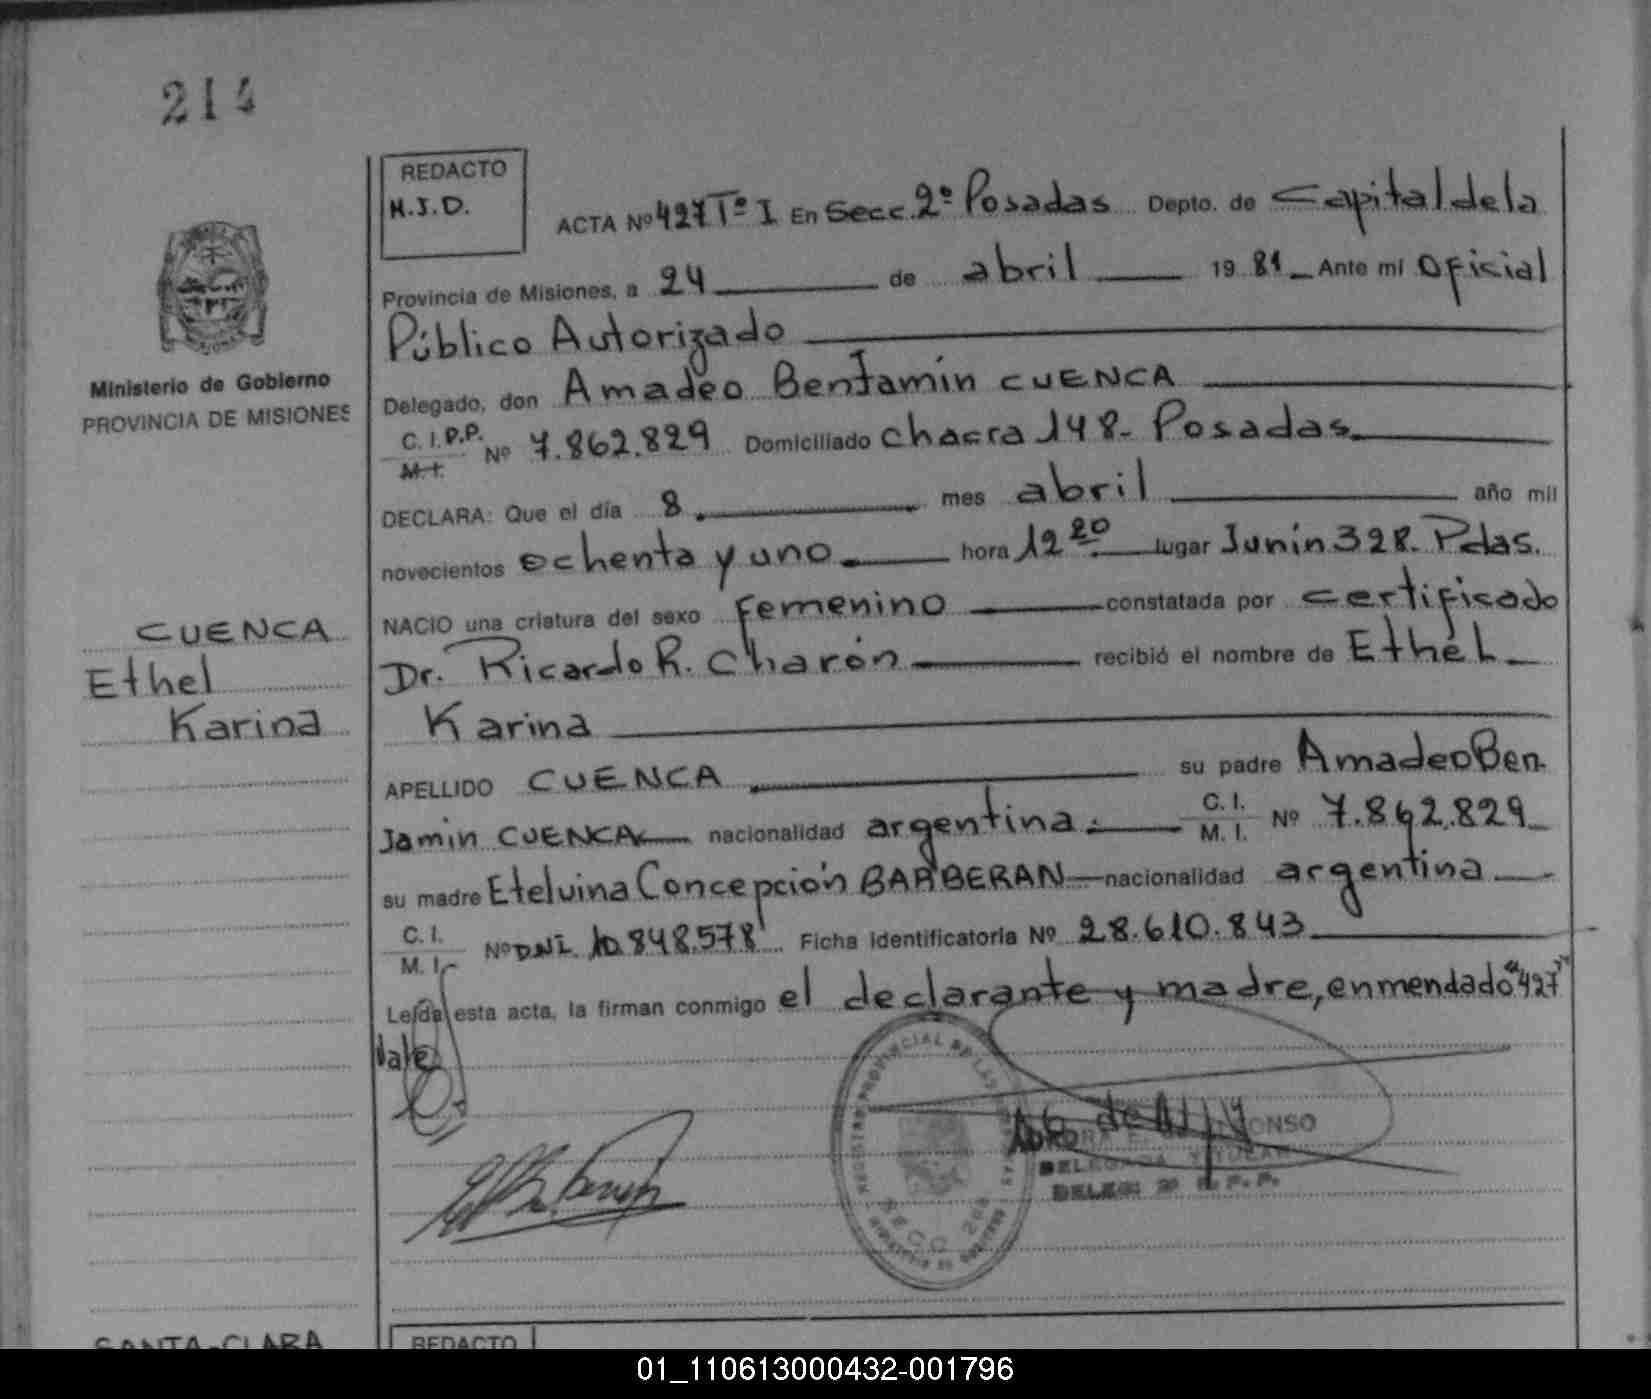 214
REDACTO
M.J.D.
ACTA Nº 427 Tº I En Secc. 2º Posadas Depto. de Capital de la
Provincia de Misiones, a 24 de abril 1981 Ante mi Oficial
Público Autorizado
Delegado, don Amadeo Benjamin CUENCA
C. I. P.P.
M. I. Nº 7.862.829 Domiciliado chacra 148 - Posadas
DECLARA: Que el día 8 mes abril año mil
novecientos ochenta y uno hora 12 20 lugar Junin 328. Pdas.
NACIO una criatura del sexo femenino constatada por certificado
Dr. Ricardo R. Charón recibió el nombre de Ethel
Karina
APELLIDO CUENCA su padre Amadeo Ben
Jamin CUENCA nacionalidad argentina C. I. M. I. Nº 7.862.829
su madre Etelvina Concepción BARBERAN nacionalidad argentina
C. I. M. I. Nº DNI. 10.848.578 Ficha identificatoria Nº 28.610.843
Leída esta acta, la firman conmigo el declarante y madre, enmendado "427"
Vale
Ministerio de Gobierno
PROVINCIA DE MISIONES
CUENCA
Ethel
Karina
REGISTRO PROVINCIAL DE LAS PERSONAS
SECC 2da
DELEGADA TITULAR
DELEG: 2ª R. P. P.
SANTA-CLARA
REDACTO
01_110613000432-001796